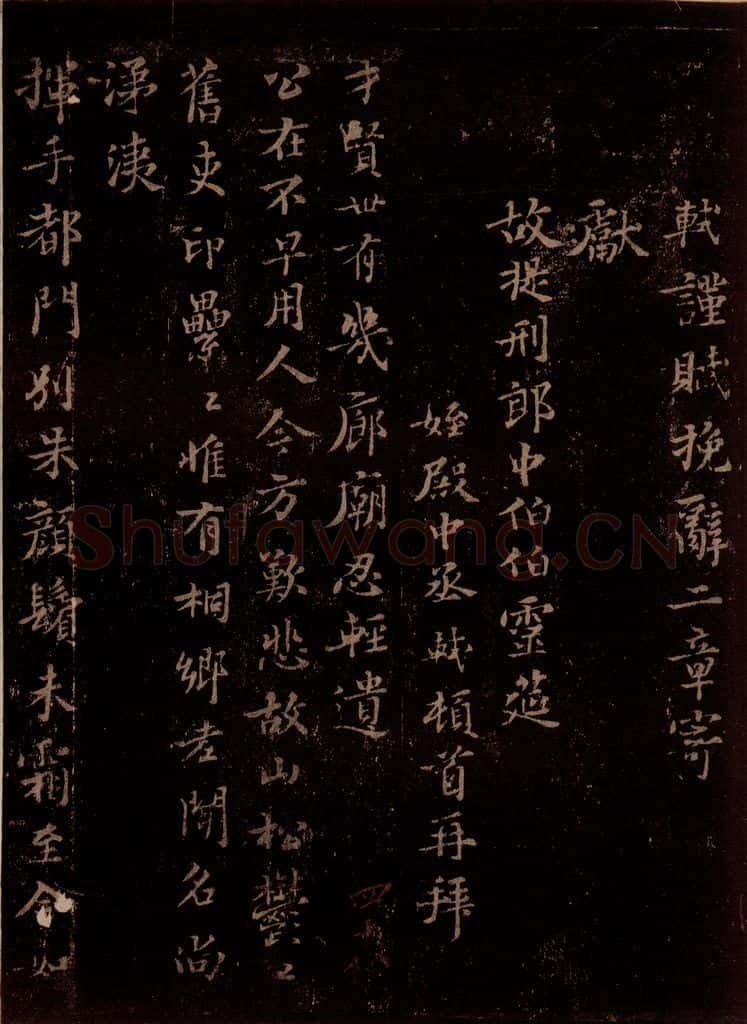 軾謹賦挽辭二章寄
獻
故提刑郎中伯伯靈筵
姪殿中丞軾頓首再拜
才賢世有幾廊廟忍輕遺
公在不早用人今方歎悲故山松鬱〻
舊吏印纍〻惟有桐鄉老聞名尚
涕洟
揮手都門別朱顏鬢未霜至今如
Shufawang.CN